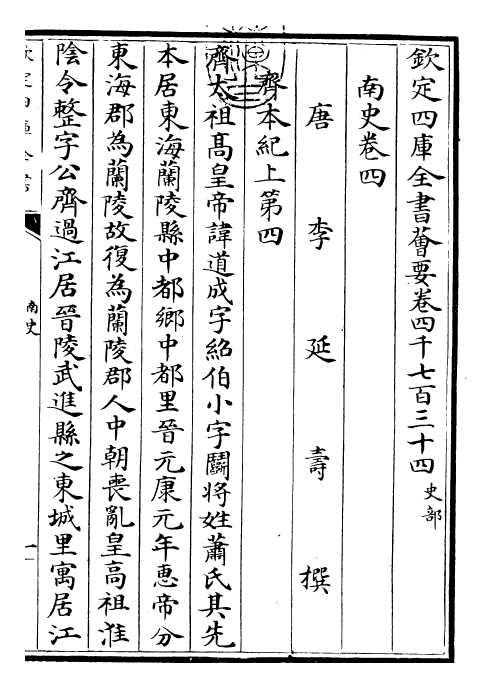 欽定四庫全書薈要卷四千七百三十四 史部
南史卷四
唐 李 延 壽 撰
齊本紀上第四
齊太祖髙皇帝諱道成字紹伯小字鬬将姓蕭氏其先
本居東海蘭陵縣中都鄉中都里晉元康元年惠帝分
東海郡為蘭陵故復為蘭陵郡人中朝喪亂皇高祖淮
陰令整字公齊過江居晉陵武進縣之東城里寓居江
南史
一